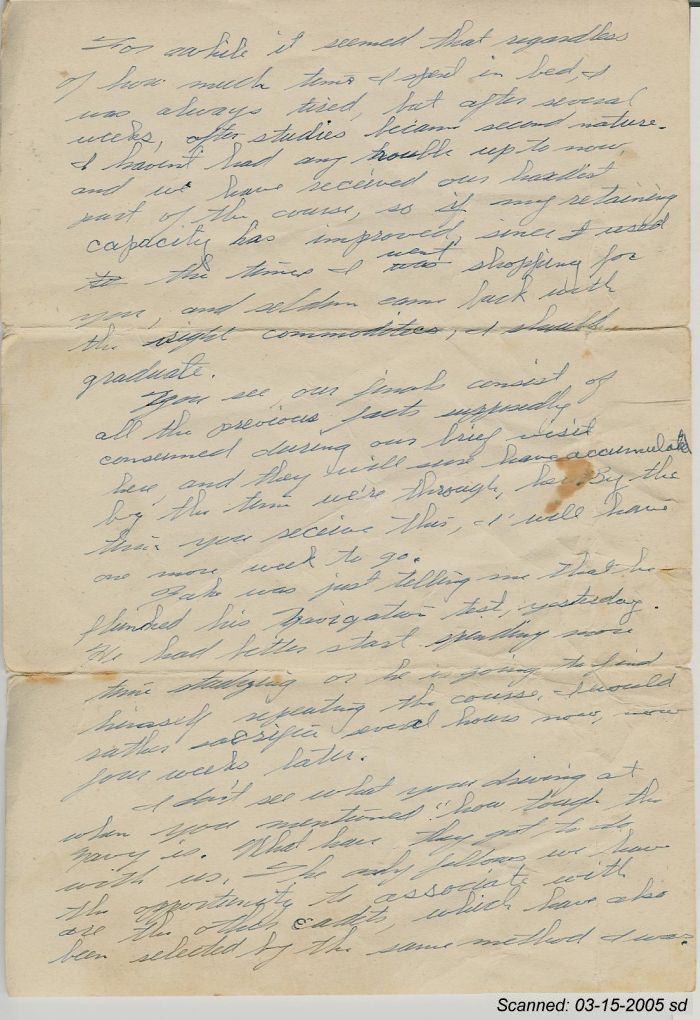 For awhile it seemed that regardless
of how much time I spent in bed, I
was always tired, but after several
weeks, after studies became second nature.
I haven't had any trouble up to now,
and we have received our hardest
part of the course, so if my retaining
capacity has improved, since I used
to the times I went shopping for
you, and seldom came back with
the right commodities, I should
graduate.
You see, our finals consist of
all the previous facts supposedly
consumed during our brief visit
here, and they will sure have accumulated
by the time we're through, ha. By the
time you receive this, I will have
one more week to go.
was just telling me that he
flunked his Navigation test, yesterday.
He had better start spending more
time studying or he is going to find
himself repeating the course. I would
rather sacrifice several hours now, now
four weeks later.
I don't see what your driving at
when you mentioned "how tough the
navy is. What have they got to do
with us. The only fellows we have
the opportunity to associate with
are the other cadets, which have also
been selected by the same method I was.
Scanned: 03-15-2005 sd